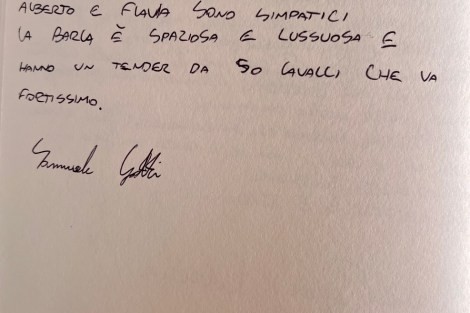 ALBERTO E FLAVIA SONO SIMPATICI
LA BARCA È SPAZIOSA E LUSSUOSA E
HANNO UN TENDER DA 50 CAVALLI CHE VA
FORTISSIMO.
Samuele